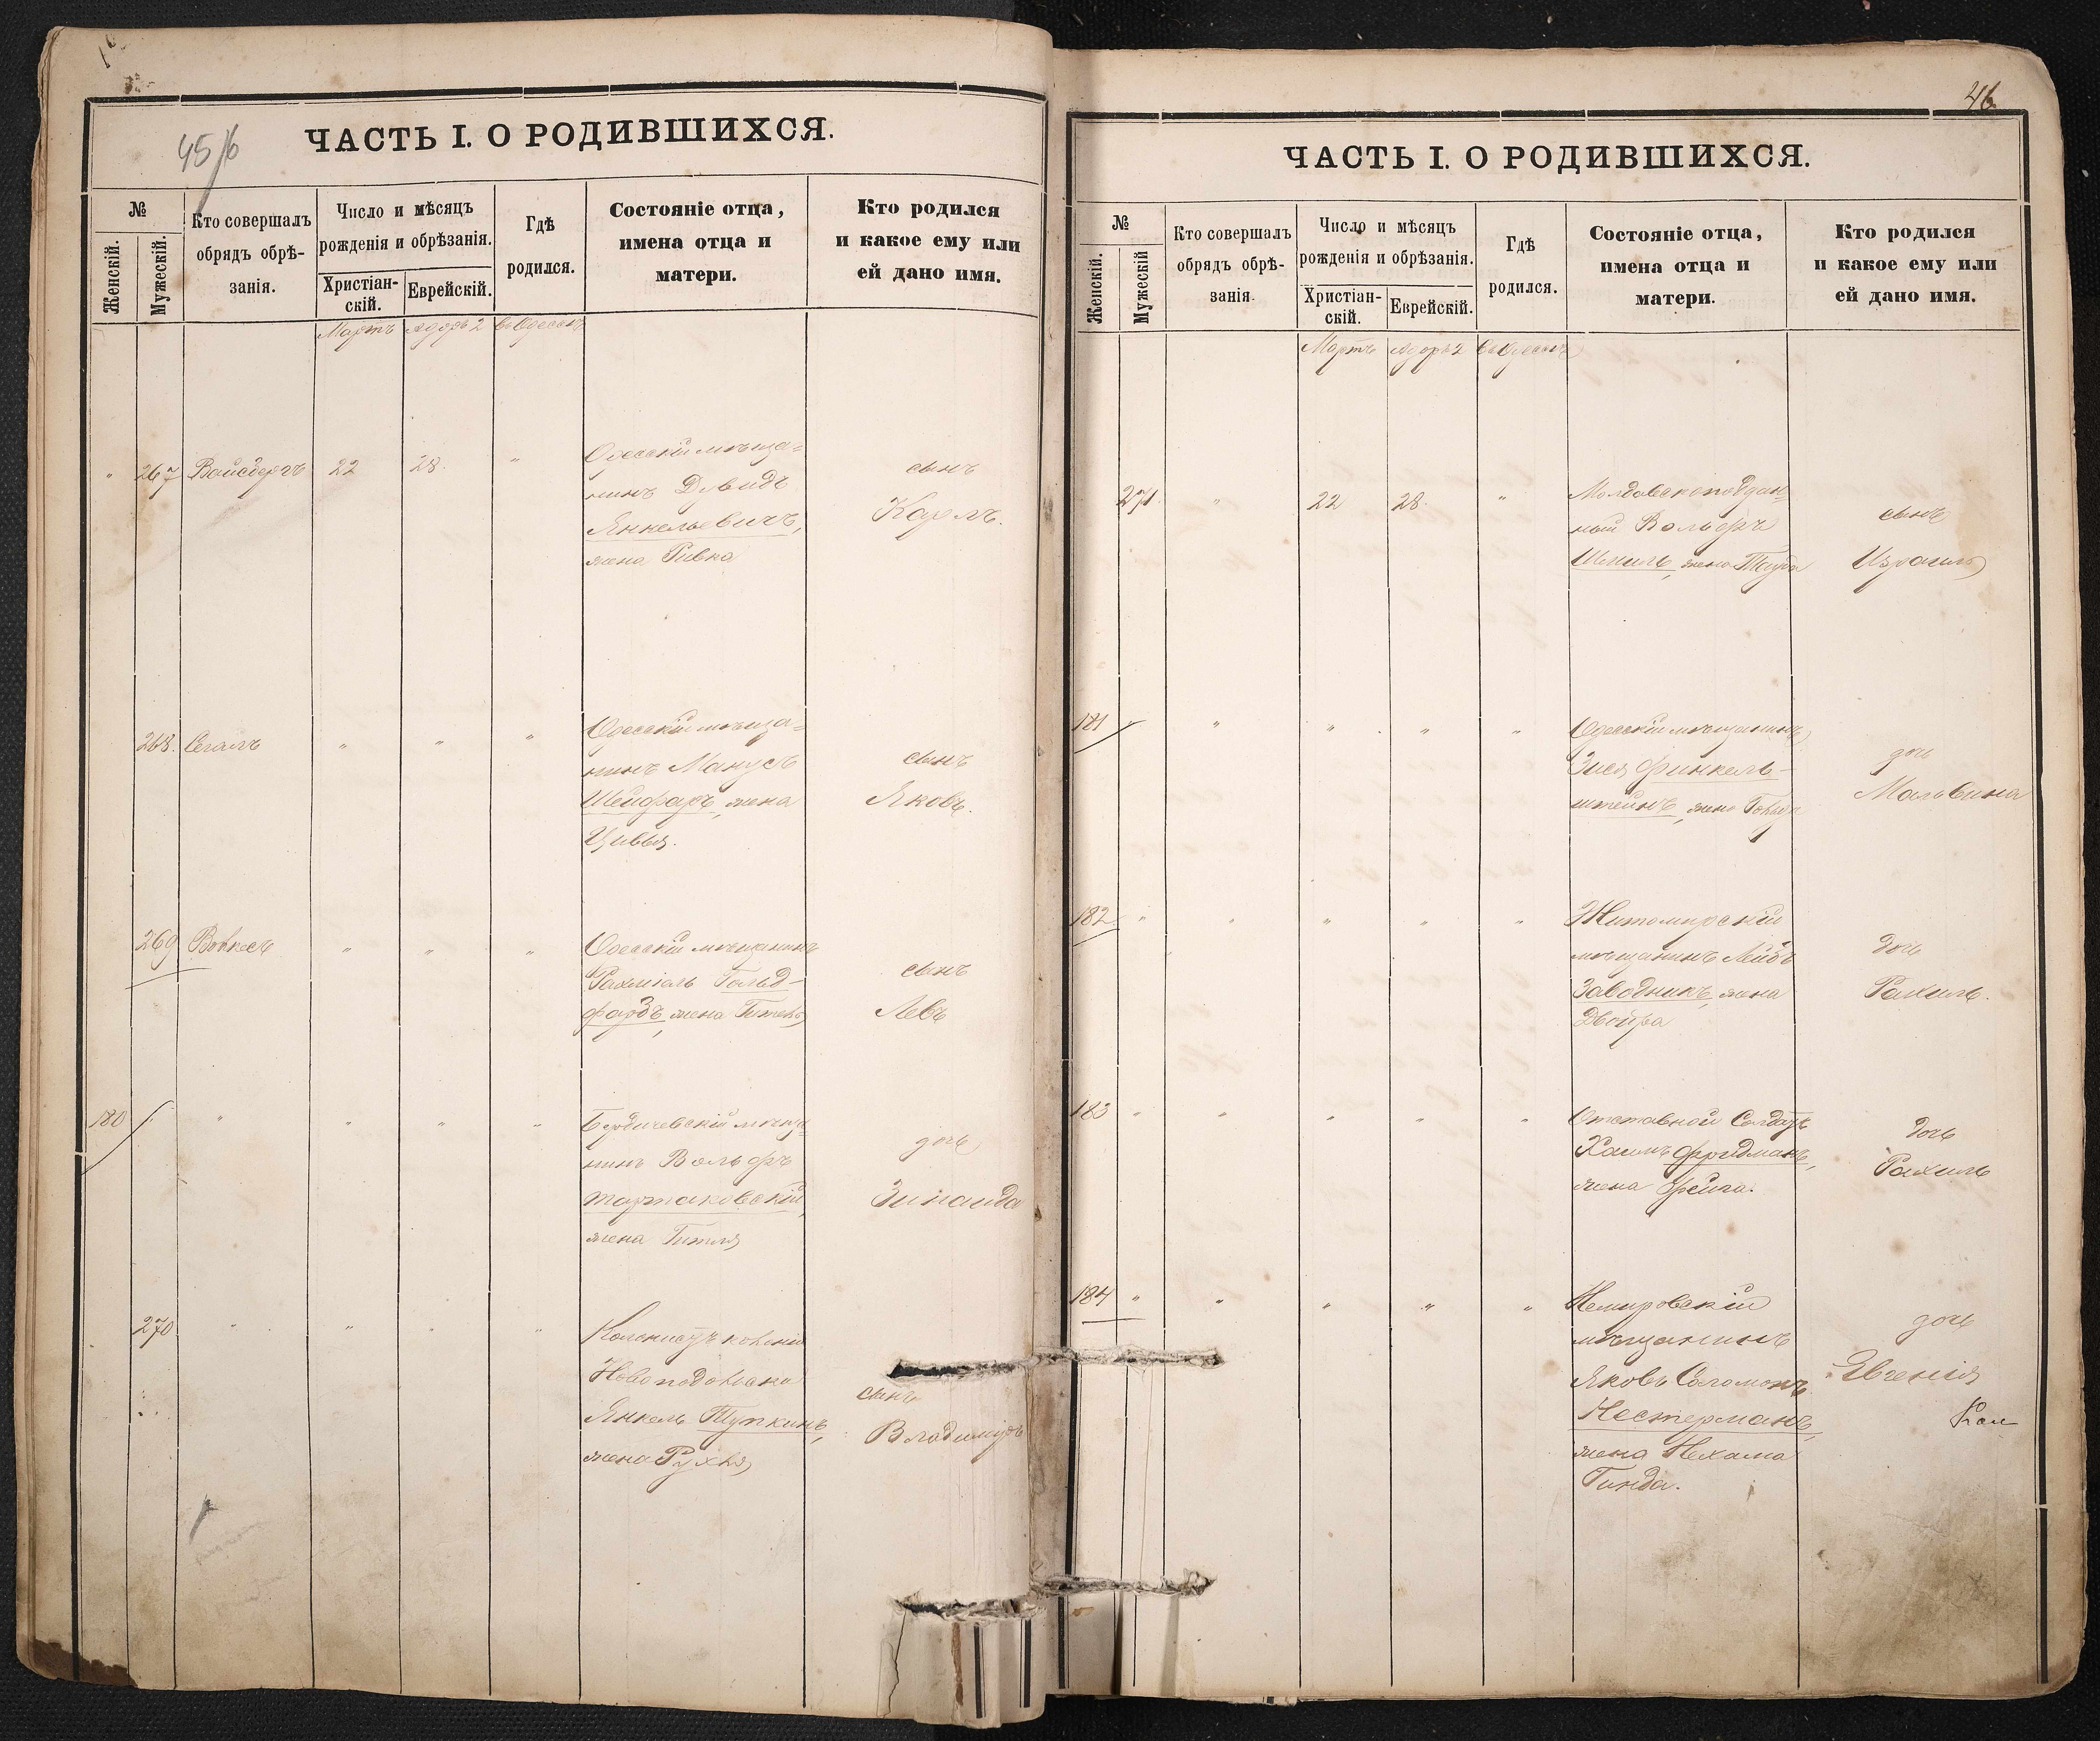 45/6
ЧАСТЬ I. О РОДИВШИХСЯ.
№
Женскій.
Мужескій.
Кто совершалъ
обрядъ обрѣ-
занія.
Число и мѣсяцъ
рожденія и обрѣзанія.
Христіан-
скій.
Еврейскій.
Гдѣ
родился.
Состояніе отца,
имена отца и
матери.
Кто родился
и какое ему или
ей дано имя.
Мартъ Адоръ 2 въ Одессѣ
" 267 Вайсбергъ 22 28 "
Одесскій мѣща-
нинъ Дувидъ
Янкельевичъ,
жена Ривка
сынъ
Карлъ.
268. Сегалъ " " "
Одесскій мѣща-
нинъ Манусъ
Шейфаръ, жена
Цивья.
сынъ
Яковъ.
269 " " "
Одесскій мѣщанинъ
Рахміель Гольд-
фарбъ, жена
сынъ
Левъ
180 " " " "
Бердичевскій мѣща-
нинъ Вольфъ
Тартаковскій,
жена Гитля
дочь
Зинаида
270 " " " "
Янкель
жена Рухля
сынъ
Владимиръ
46
ЧАСТЬ I. О РОДИВШИХСЯ.
№
Женскій.
Мужескій
Кто совершалъ
обрядъ обрѣ-
занія.
Число и мѣсяцъ
рожденія и обрѣзанія.
Христіан-
скій.
Еврейскій.
Гдѣ
родился.
Состояніе отца,
имена отца и
матери.
Кто родился
и какое ему или
ей дано имя.
Мартъ Адоръ 2 въ Одессѣ
271. " 22 28. "
Молдавскоподдан-
ный Вольфъ
жена Тауба
сынъ
Израиль
181 " " " " "
Одесскій мѣщанинъ
Зися Финкель-
штейнъ, жена
дочь
Мальвина
182 " " " " "
Житомирскій
мѣщанинъ Лейбъ
Заводникъ, жена
Двойра
дочь
Рахиль.
183 " " " " "
Отставной Солдатъ
Хаимъ Фридманъ,
жена Фейга.
дочь
Рахиль
184 " " " " "
Немировскій
мѣщанинъ
Яковъ Соломонъ
Нестерманъ,
жена Нехама
Гинда.
дочь
Евгенія